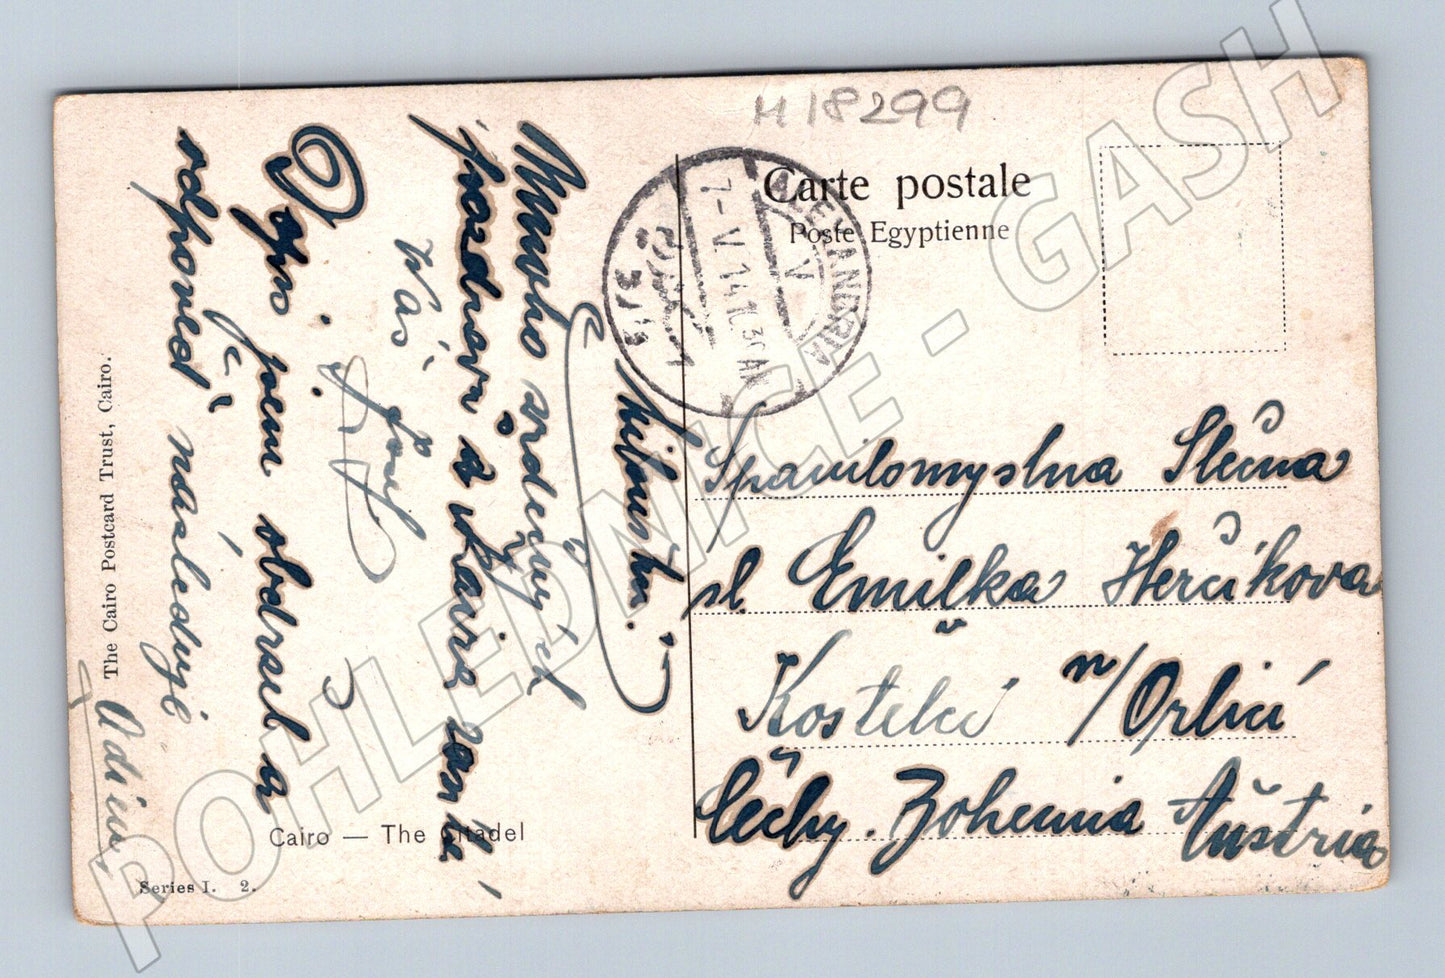 H 18299
Carte postale
Poste Egyptienne
ALEXANDRIA
V
7-V.14.10.30 AM
Spanilomyslna Slečna
sl. Emilka Herčíkova
Kostelci n/Orlicí
Čechy. Bohemia Austria
Mnoho srdečných
pozdrav z Kaira
Váš
Josef
Dopis jsem obdržel a
odpověď následuje
Adieu
The Cairo Postcard Trust, Cairo.
Cairo — The Citadel
Series I. 2.
POHLEDNICE - GASH